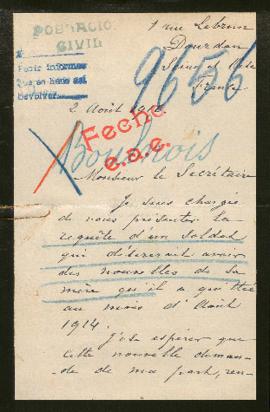 POBLACIO
CIVIL
1 rue Lebrun
Dourdan
Seine et Oise
France
9656
Pedir informes
devolver
2 Août
Fecho
c.a.e.
Monsieur le Secrétaire
Je suis chargée
de vous présenter la
requête d'un soldat
qui désirerait avoir
des nouvelles de sa
mère qu'il a quittée
au mois d'Août
1914.
J'ose espérer que
cette nouvelle deman-
de de ma part, ren-